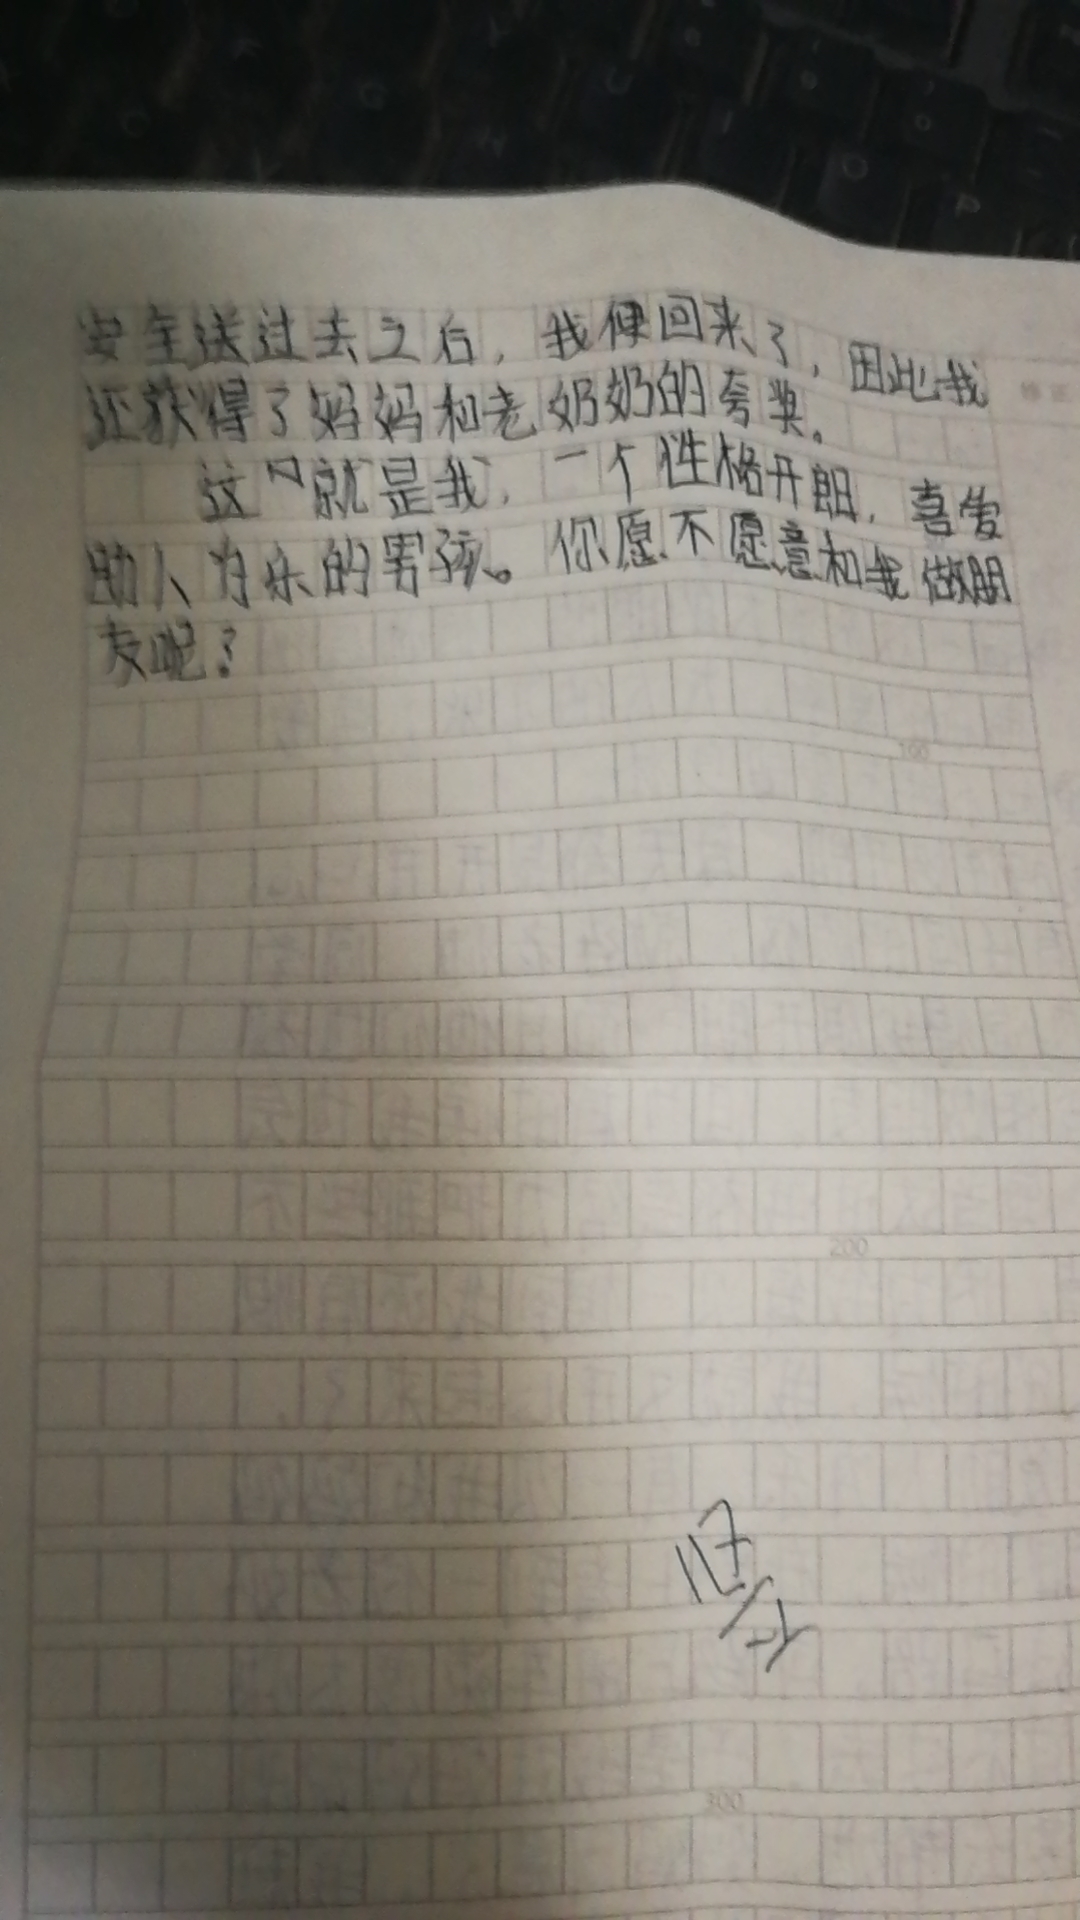 安全送过去之后，我便回来了，因此我
还获得了妈妈和老奶奶的夸奖。
这就是我，一个性格开朗，喜爱
助人为乐的男孩。你愿不愿意和我做朋
友呢？
100
200
300